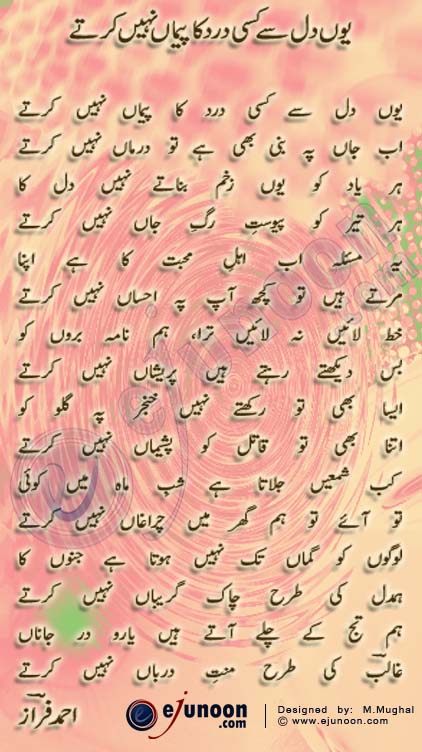 یوں دل سے کسی درد کا پیماں نہیں کرتے
یوں دل سے کسی درد کا پیماں نہیں کرتے
اب جاں پہ بنی بھی ہے تو درماں نہیں کرتے
ہر یاد کو یوں زخم بناتے نہیں دل کا
ہر تیر کو پیوست رگِ جاں نہیں کرتے
یہ مسئلہ اب اہلِ محبت کا ہے اپنا
مرتے ہیں تو کچھ آپ پہ احساں نہیں کرتے
خط لائیں نہ لائیں ترا، ہم نامہ بروں کو
بس دیکھتے رہتے ہیں پریشاں نہیں کرتے
ایسا بھی تو رکھتے نہیں خنجر پہ گلو کو
اتنا بھی تو قاتل کو پشیماں نہیں کرتے
کب شمعیں جلاتا ہے شبِ ماہ میں کوئی
تو آئے تو ہم گھر میں چراغاں نہیں کرتے
لوگوں کو گماں تک نہیں ہوتا ہے جنوں کا
ہم دل کی طرح چاک گریباں نہیں کرتے
ہم تج کے چلے آتے ہیں یارو درِ جاناں
غالبؔ کی طرح منتِ درباں نہیں کرتے
احمد فرازؔ
ejunoon.com
Designed by: M.Mughal
© www.ejunoon.com
ejunoon.com